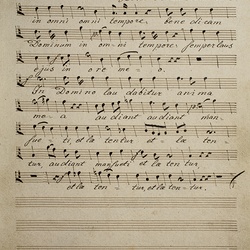 in omni omni tempore, bene dicam
Dominum in omni tempore semper laus
ejus in ore meo.
In Domino lau dabitur anima
mea audiant audiant man-
sue ti et læ tentur et læ ten-
tur, audiant mansueti et læ ten tur
et læ ten- tur, et læ ten- tur.